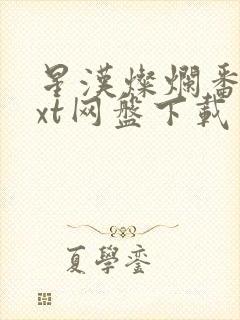 星漢燦爛番
xt网盤下載
夏學鑾